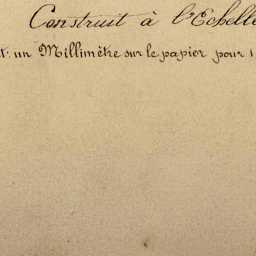 Construit à l'Echelle
t: un Millimètre sur le papier pour 1